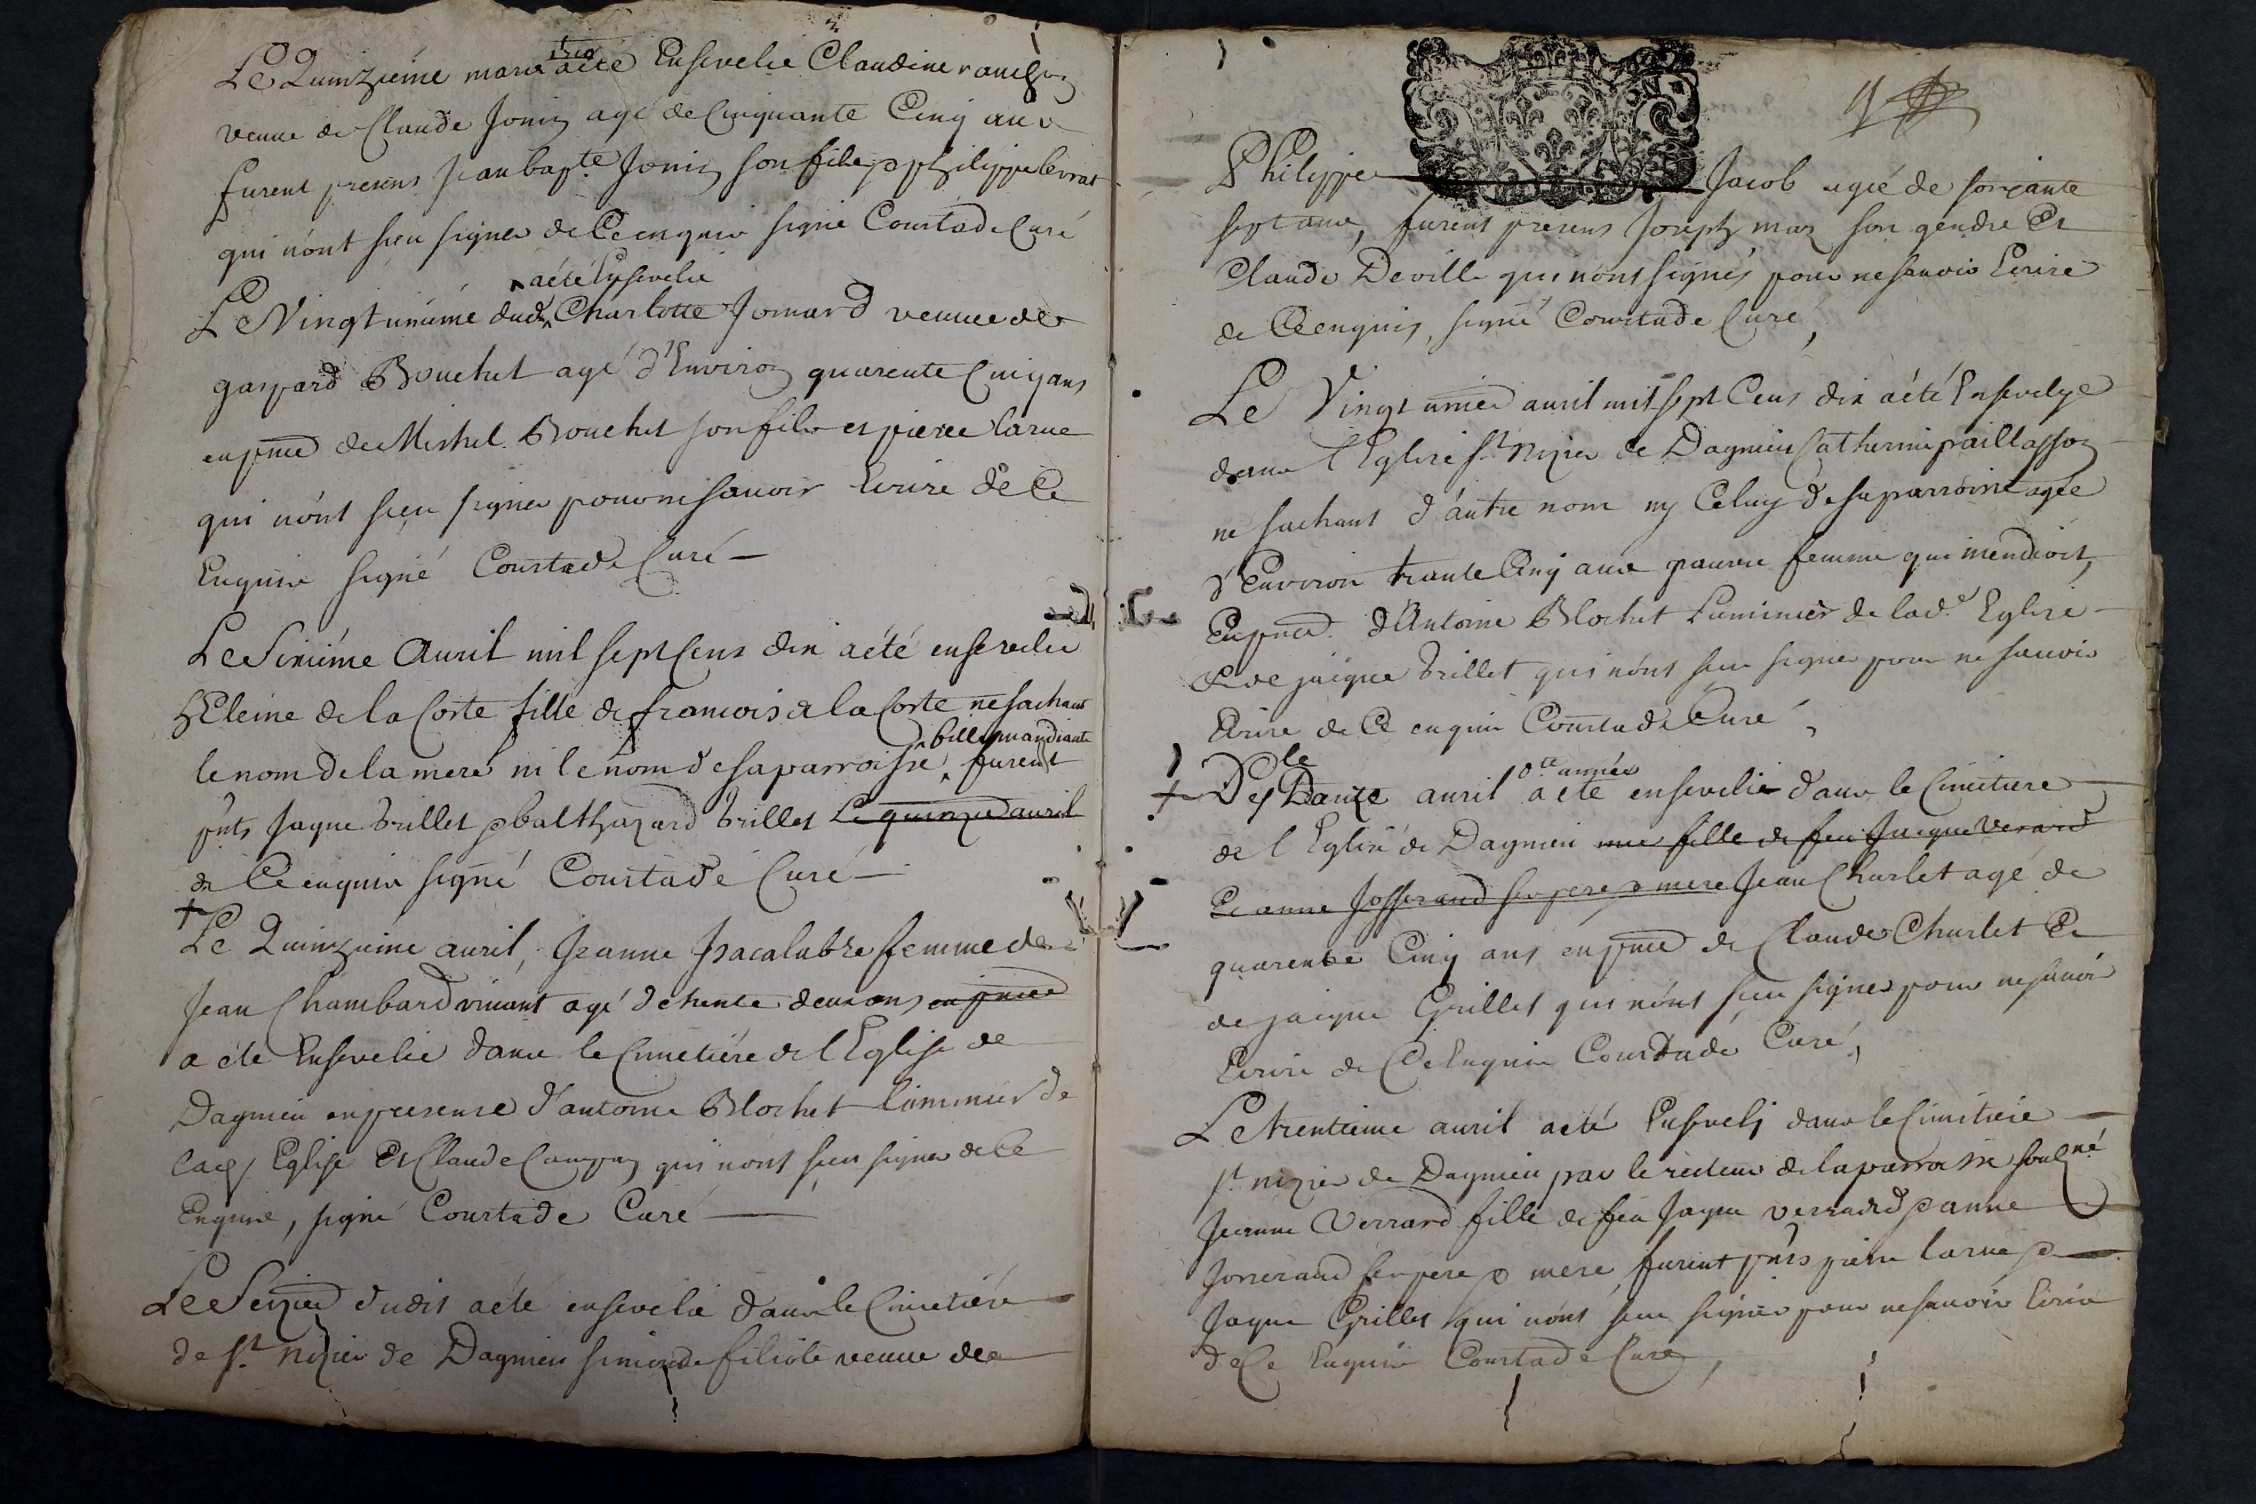 1710
Le Quinziéme mars a été Ensevelie Claudine
veuve de Claude Jonin agé de Cinquante Cinq ans
furent presens Jean bapte. Jonin son fils & philippe levrat
qui n'ont sceu signer de Ce enquis signé Courtade Curé
a été Ensevelie
Le Vingt uniéme dudt Charlotte Jomard veuve de
gaspard Bouchet agé d'Environ quarente Cinq ans
en pnce de Michel Bouchet son fils et pierre larue
qui n'ont sceu signer pour ne savoir Ecrire de Ce
Enquis signé Courtade Curé
Le Sixiéme Avril mil sept Cens dix a été ensevelie
hEleine de la Corte fille de francois de la Corte ne sachant
mandiante
le nom de la mere ni le nom de sa parroisse, furent
pnts Jaque brillet & balthazard brillet Le quinze avril
de Ce enquis signé Courtade Curé
Le Quinziéme avril, Jeanne Jracalabre femme de
Jean Chambard vivant agé de trente deux ans en pnce
a été Ensevelie dans le Cimetiére de l'Eglise de
Dagnieu en presense d'antoine Blochet luminier de
Eglise Et Claude qui n'ont sceu signer de Ce
Enquis, signé Courtade Curé
Le Seizie dudit a été ensevelie dans le Cimetiére
de St. Nizier de Dagnieu simonde filiole veuve de
Philippe Jacob agé de soixante
sept ans, furent presens Joseph maz son gendre Et
Claude Deville qui n'ont signés pour ne savoir Ecrire
de Ce enquis, signé Courtade Curé,
Le Vingt unie avril mil sept Cens dix a été Ensevelye
dans l'Eglise St. Nizier de Dagnieu Catherine paillasson
ne sachant d'autre nom ny Celuy de sa parroisse agée
d'Environ trante Cinq ans pauvre femme qui mendioit,
En pnce. d'Antoine Blochet Luminier de lade. Eglise
& de jaique brillet qui n'ont sceu signer pour ne savoir
Ecrire de Ce enquis Courtade Curé,
le
année
avril a été ensevelie dans le Cimitiere
de l'Eglise de Dagnieu une fille de feu Jacque verard
Et anne Josserand ses pere & mere Jean Charlet agé de
quarente Cinq ans en pnce de Claude Charlet Et
de jaique Grillet qui n'ont sceu signer pour ne savoir
Ecrire de Ce Enquis Courtade Curé,
Le trentieme avril a été Ensevelj dans le Cimitiere
St. nizier de Dagnieu par le recteur de la parroisse soussné
Jeanne Verrard fille de feu Jaque verrard & anne
Josserand ses pere & mere, furent pnts pierre larue &
Jaque Grillet qui n'ont sceu signer pour ne savoir Ecrire
de Ce Enquis Courtade Curé,